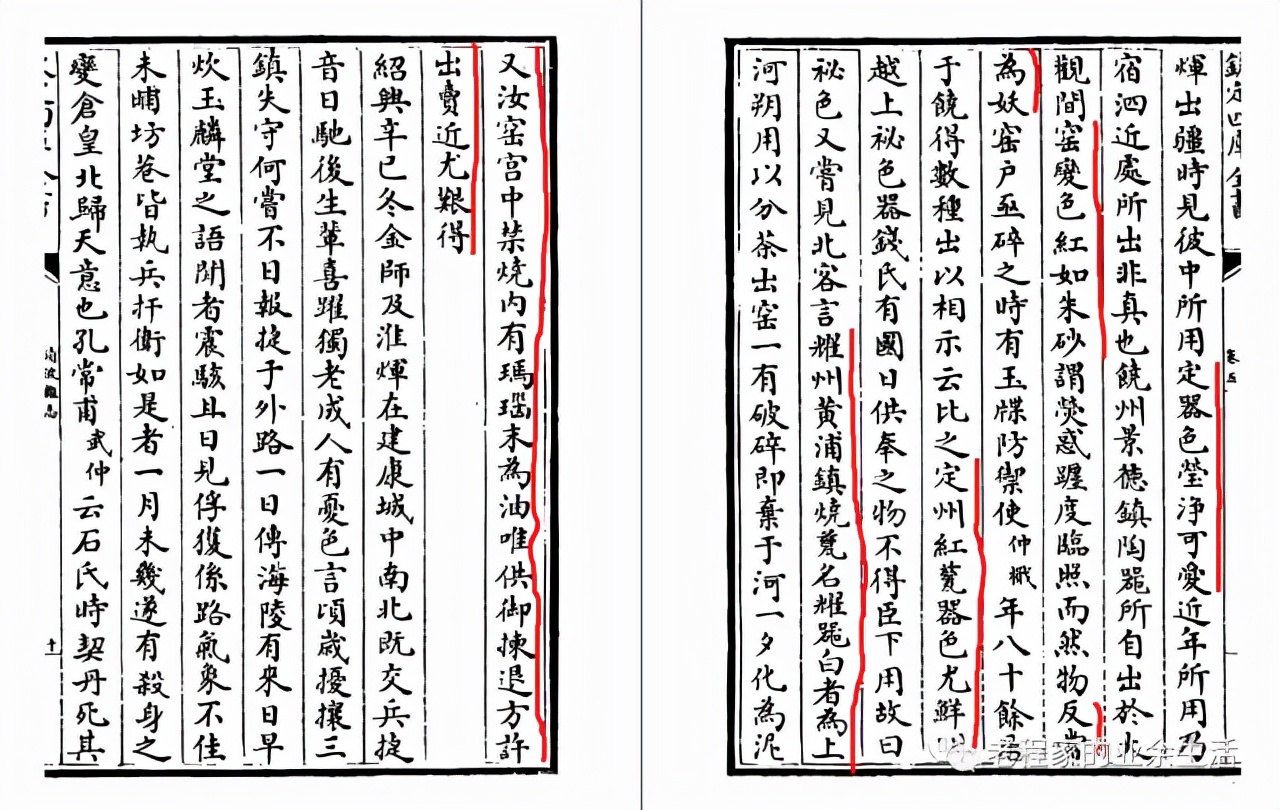 欽定四庫全書
卷五
煇出疆時見彼中所用定器色瑩淨可愛近年所用乃
宿泗近處所出非真也饒州景德鎮陶器所自出於大
觀間窑變色紅如朱砂謂熒惑躔度臨照而然物反常
為妖窑户亟碎之時有玉牒防禦使仲檝年八十餘居
于饒得數種出以相示云比之定州紅甆器色尤鮮明
越上祕色器錢氏有國日供奉之物不得臣下用故曰
祕色又嘗見北客言耀州黄浦鎮燒甆名耀器白者為上
河朔用以分茶出窑一有破碎即棄于河一夕化為泥
又汝窑宫中禁燒内有瑪瑙末為油唯供御揀退方許
出賣近尤艱得
紹興辛已冬金師及淮煇在建康城中南北既交兵捷
音日馳後生輩喜躍獨老成人有憂色言頃歲擾攘三
鎮失守何嘗不日報捷于外路一日傳海陵有來日早
炊玉麟堂之語聞者震駭且日見俘獲係路氣象不佳
未晡坊巷皆執兵扞衛如是者一月未幾遂有殺身之
變倉皇北歸天意也孔常甫武仲云石氏時契丹死其
清波雜志
十一
老程家的业余生活